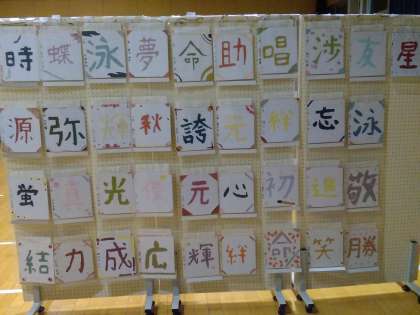 時 蝶 泳 夢 命 助 唱 渉 友 星
源 弥 輝 秋 誇 元 絆 忘 泳
蛍 真 光 優 元 心 初 進 敬
結 力 成 広 輝 絆 命 笑 勝